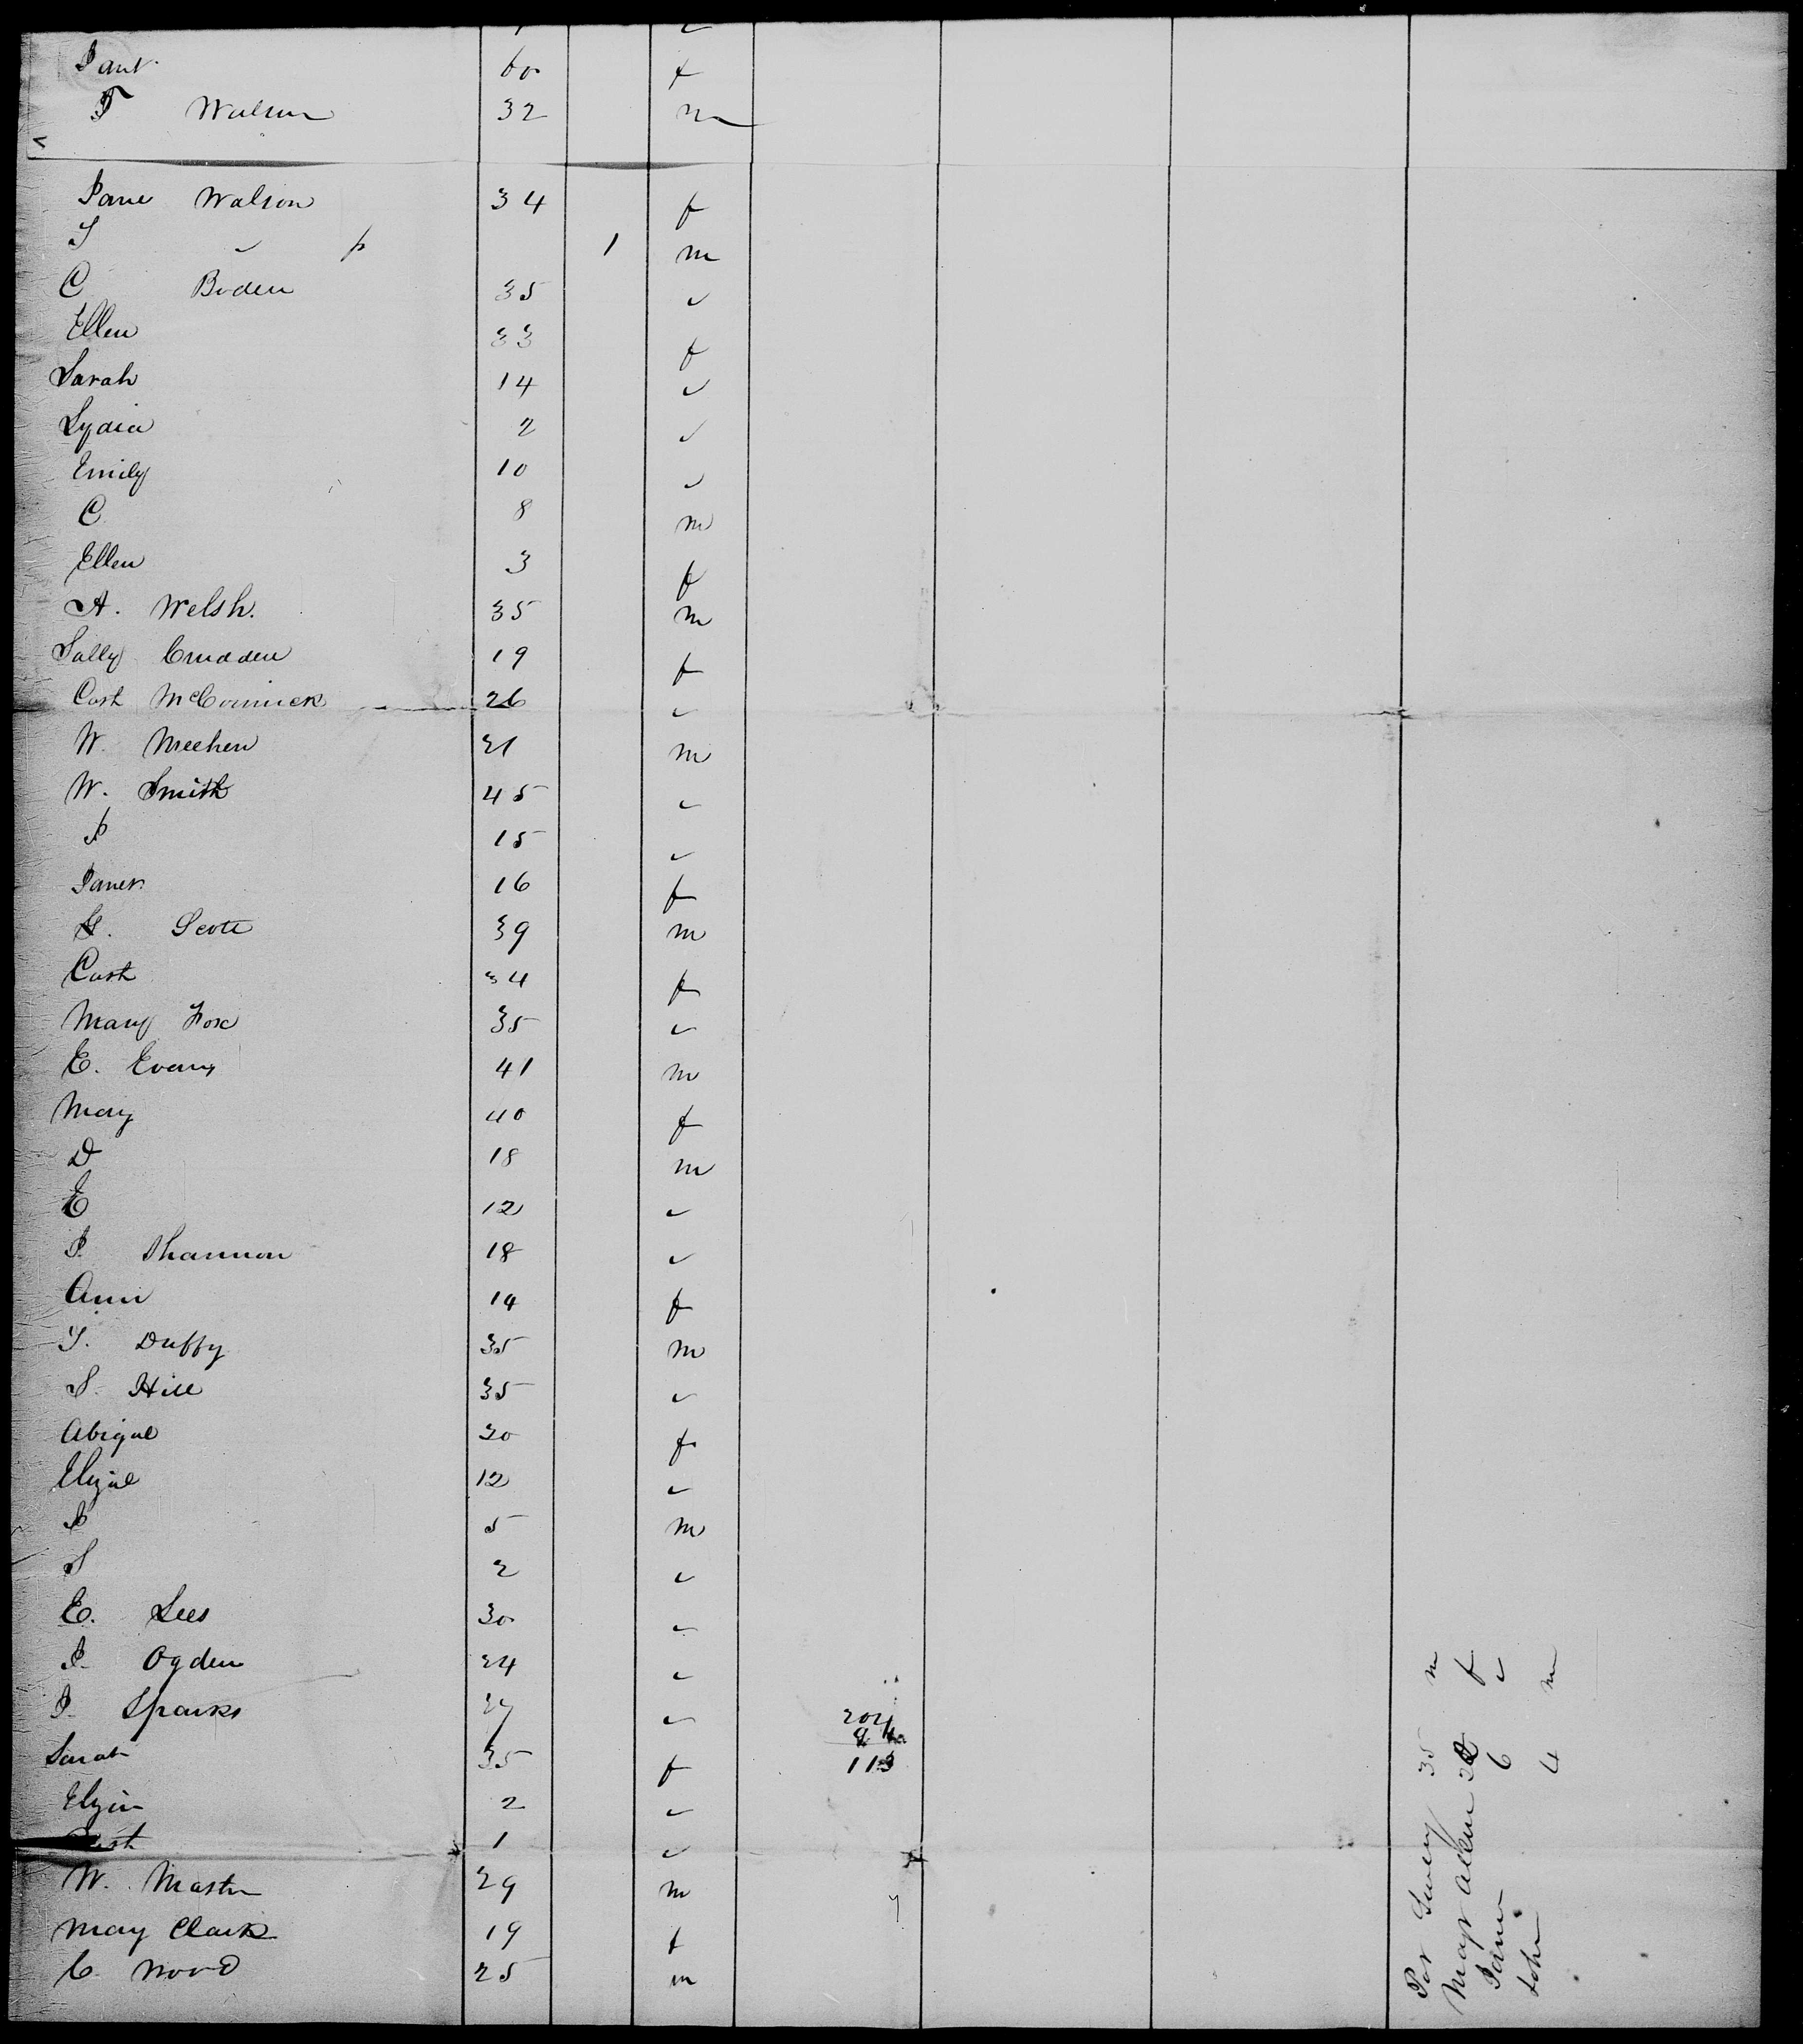 60 f
Walson 32 m
Jane Walson 34 f
S 〃 p 1 m
C Boden 35 〃
Ellen 33 f
Sarah 14 〃
Lydia 2 〃
Emily 10 〃
C 8 m
Ellen 3 f
A. Welsh. 35 m
Sally Crudden 19 f
Cath McCormick 26 〃
W. Meehen 21 m
W. Smith 45 〃
J 15 〃
Janet 16 f
G. Scott 39 m
Cath 34 f
Mary Fox 35 〃
E. Evans 41 m
Mary 40 f
D 18 m
E 12 〃
J. Shannon 18 〃
Ann 14 f
T. Duffy 35 m
S. Hill 35 〃
Abigal 30 f
Elizae 12 〃
J 5 m
S 2 〃
E. Lees 30 〃
J. Ogden 24 〃
J. Sparks 27 〃
Sarah 35 f
Eliza 2 〃
1 〃
W. Master 29 m
Mary Clark 19 f
C. Wood 25 m
204
113
Pat 35 m
Allen f
6 〃
John 4 m